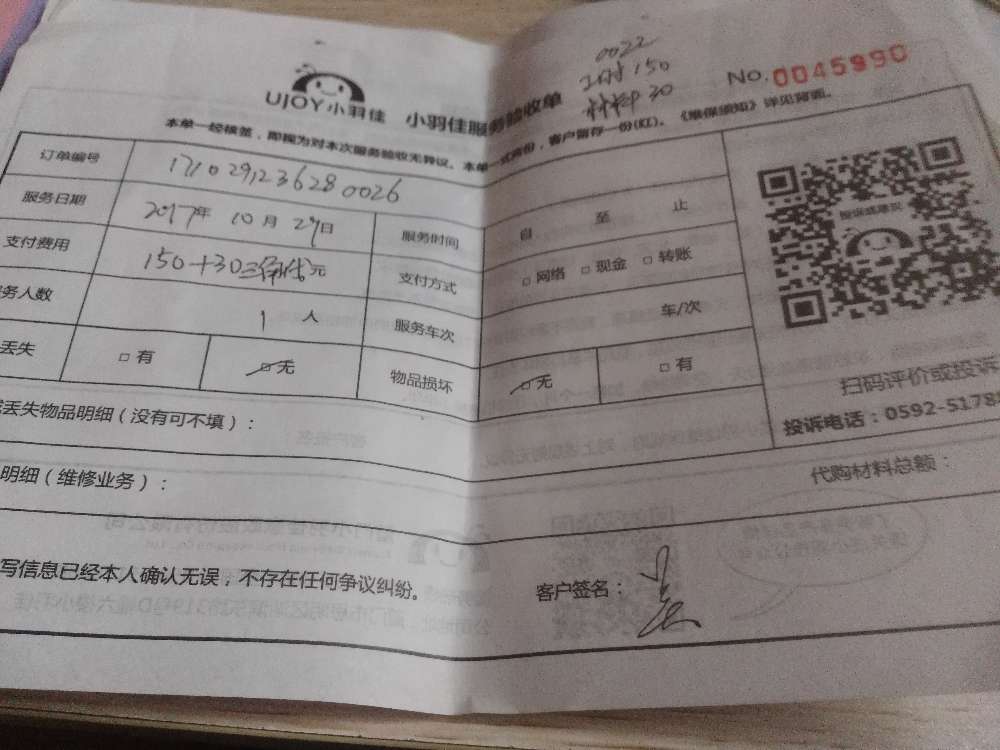 0022
工时150
材料30
UJOY小羽佳 小羽佳服务验收单 No.0045990
本单一经核签，即视为对本次服务验收无异议。本单一式两份，客户留存一份(红)。《维保须知》详见背面。
订单编号 171029123628 0026
服务日期 2017年 10月 29日 服务时间 自 至 止
支付费用 150+30三角伐元 支付方式 □网络 □现金 □转账
务人数 1 人 服务车次 车/次
丢失 □有 □无 物品损坏 □无 □有
丢失物品明细（没有可不填）：
明细（维修业务）： 代购材料总额：
投诉或表扬
扫码评价或投诉
投诉电话：0592-5178
写信息已经本人确认无误，不存在任何争议纠纷。 客户签名：